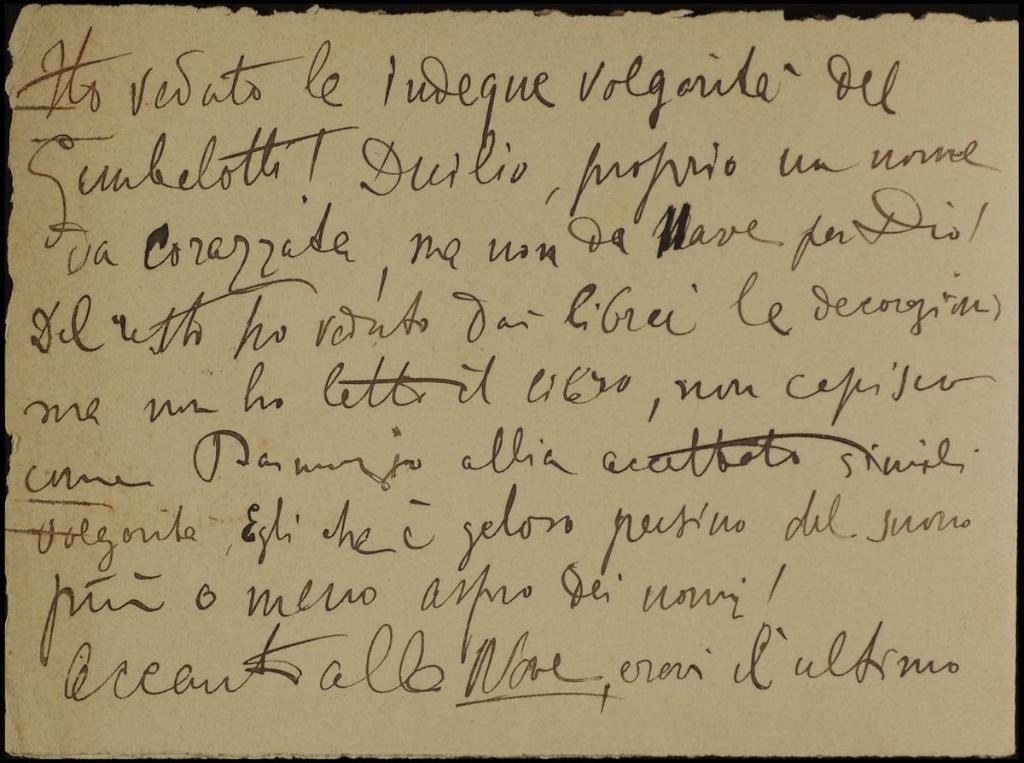 Ho veduto le indegne volgarità del
Cambelotti! Duilio, proprio un nome
da corazzata, ma non da Nave per Dio!
Del resto ho veduto dai librai le decorazioni
ma non ho letto il libro, non capisco
come D'Annunzio abbia accettato simili
volgarità, Egli che è geloso persino del suono
più o meno aspro dei nomi!
Accanto alla Nave, eravi l'ultimo